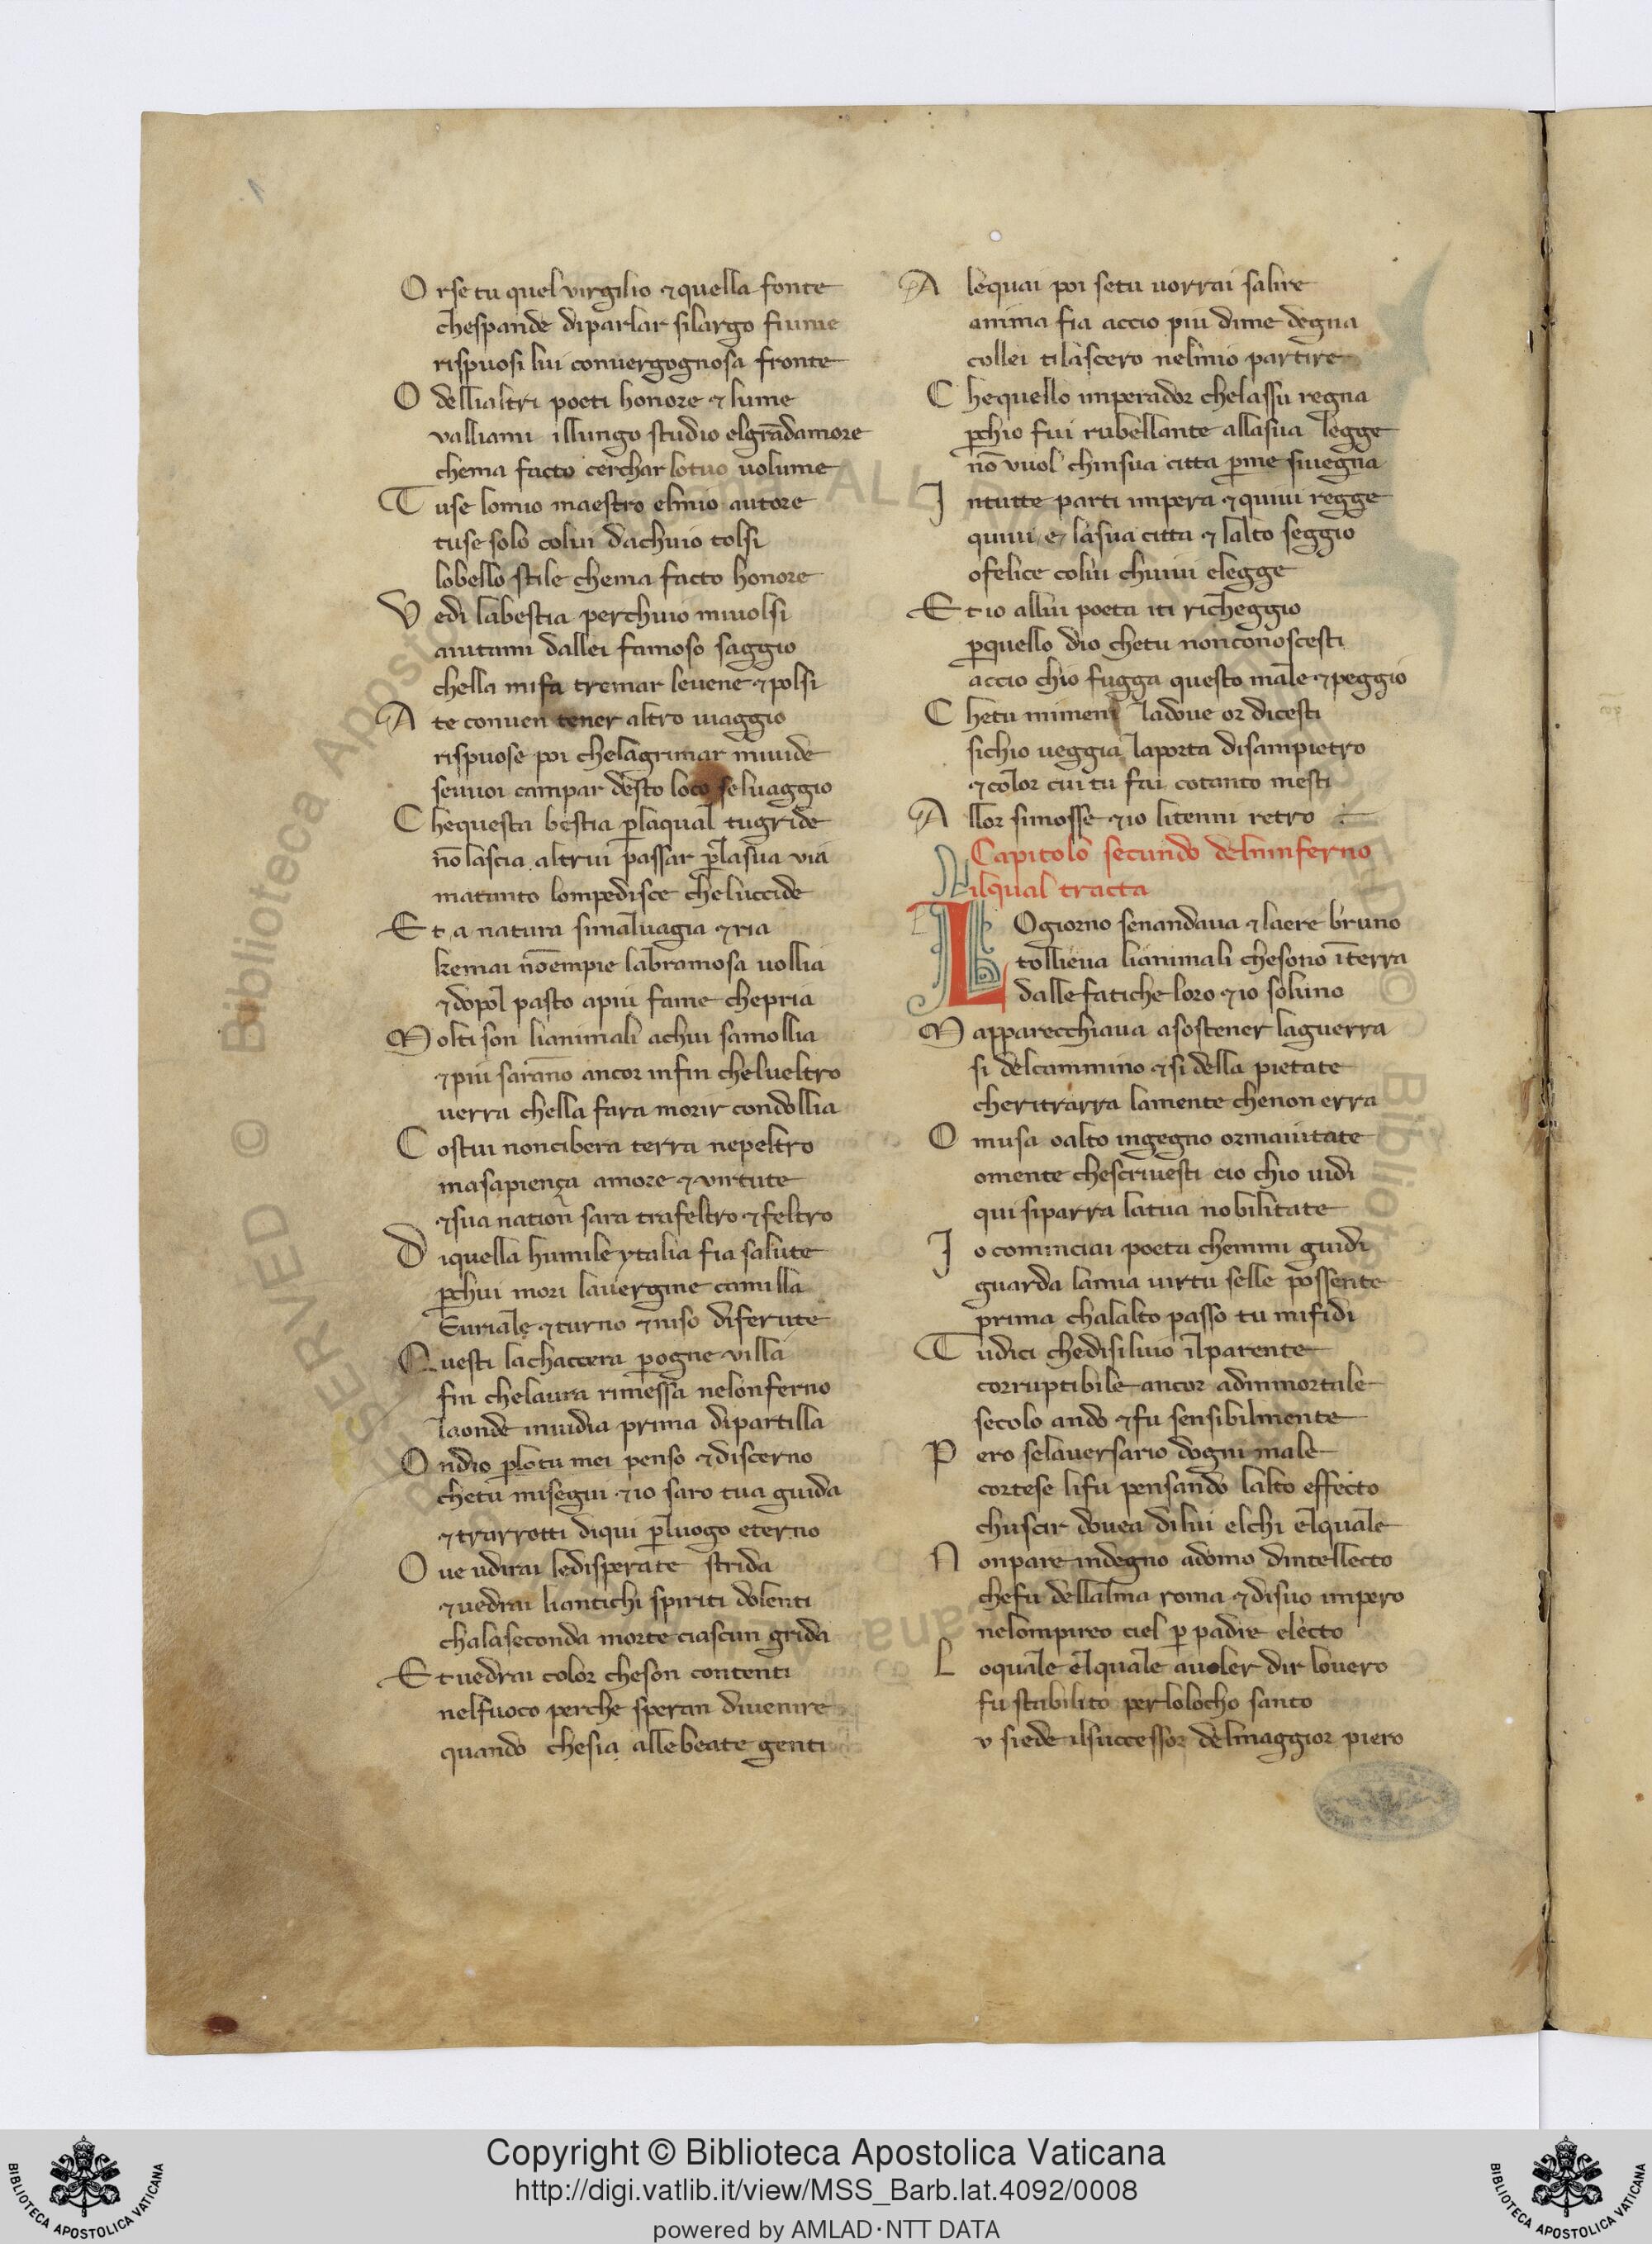 O rse tu quel virgilio ⁊ quella fonte
chespande diparlar silargo fiume
rispuosi lui convergognosa fronte
O dellialtri poeti honore ⁊ lume
valliami illungo studio elgrādamore
chema facto cerchar lotuo uolume
T use lomio maestro elmio autore
tuse solo colui dachuio tolsi
lobello stile chema facto honore
V edi labestia perchuio miuolsi
aiutami dallei famoso saggio
chella mifa tremar leuene ⁊ polsi
A te conuen tener altro uiaggio
rispuose poi chelagrimar miuide
seuuoi campar desto loco seluaggio
C hequesta bestia p̱laqual tugride
nō lascia altrui passar p̱lasua via
matanto lompedisce cheluccide
E t a natura simaluagia ⁊ ria
kemai nōempie labramosa uollia
⁊ dopol pasto apiu fame chepria
M olti son lianimali achui samollia
⁊ piu sarāno ancor infin chelueltro
uerra chella fara morir condollia
C ostui noncibera terra nepeltro
masapiença amore ⁊ virtute
⁊ sua nation sara trafeltro ⁊ feltro
D iquella humile ytalia fia salute
p̱chui mori lauergine camilla
Eurialȩ ⁊ turno ⁊ niso diferute
Q uesti lachaccera p̱ogne villa
fin chelaura rimessa nelonferno
laonde inuidia prima dipartilla
O ndio p̱lotu mei penso ⁊ discerno
chetu misegui ⁊ io saro tua guida
⁊ trarrotti diqui p̱luogo eterno
O ue udirai ledisperate strida
⁊ uedrai liantichi spiriti dolenti
chalaseconda morte ciascun grida
E t uedrai color cheson contenti
nelfuoco perche speran diuenire
quando chesia allebeate genti
A lequai poi setu uorrai salire
anima fia accio piu dime degna
collei tilascero nelmio partire
C hequello imperador chelassu regna
p̱chio fui rubellante allasua legge
nō vuol chinsua citta p̱me siuegna
I ntutte parti impera ⁊ quiui regge
quiui e lasua citta ⁊ lalto seggio
ofelice colui chuiui elegge
E t io allui poeta iti richeggio
p̱quello dio chetu nonconoscesti
accio chio fugga questo male ⁊ peggio
C hetu mimeni ladoue or dicesti
sichio ueggia laporta disampietro
⁊ color cui tu fai cotanto mesti
A llor simosse ⁊ io litenni retro
Capitolo secundo delninferno
ilqual tracta
L Ogiorno senandaua ⁊ laere bruno
tollieua lianimali chesono īterra
dallefatiche loro ⁊ io soluno
M apparecchiaua asostener laguerra
si delcammino ⁊ si della pietate
cheritrarra lamente chenon erra
O musa oalto ingegno ormaiutate
omente chescriuesti cio chio uidi
qui siparra latua nobilitate
I o cominciai poeta chemmi guidi
guarda lamia uirtu selle possente
prima chalalto passo tu mifidi
T udici chedisiluio ilparente
corruptibile ancor adimmortale
secolo ando ⁊ fu sensibilmente
P ero selauersario dogni male
cortese lifu pensando lalto effecto
chuscir douea dilui elchi elquale
N onpare indegno adomo dintellecto
chefu dellalma roma ⁊ disuo impero
nelompireo ciel p̱ padre electo
L oquale elquale auoler dir louero
fu stabilito perlolocho santo
v siede ilsuccessor delmaggior piero
Copyright © Biblioteca Apostolica Vaticana
http://digi.vatlib.it/view/MSS_Barb.lat.4092/0008
powered by AMLAD·NTT DATA
BIBLIOTECA APOSTOLICA VATICANA
BIBLIOTECA APOSTOLICA VATICANA